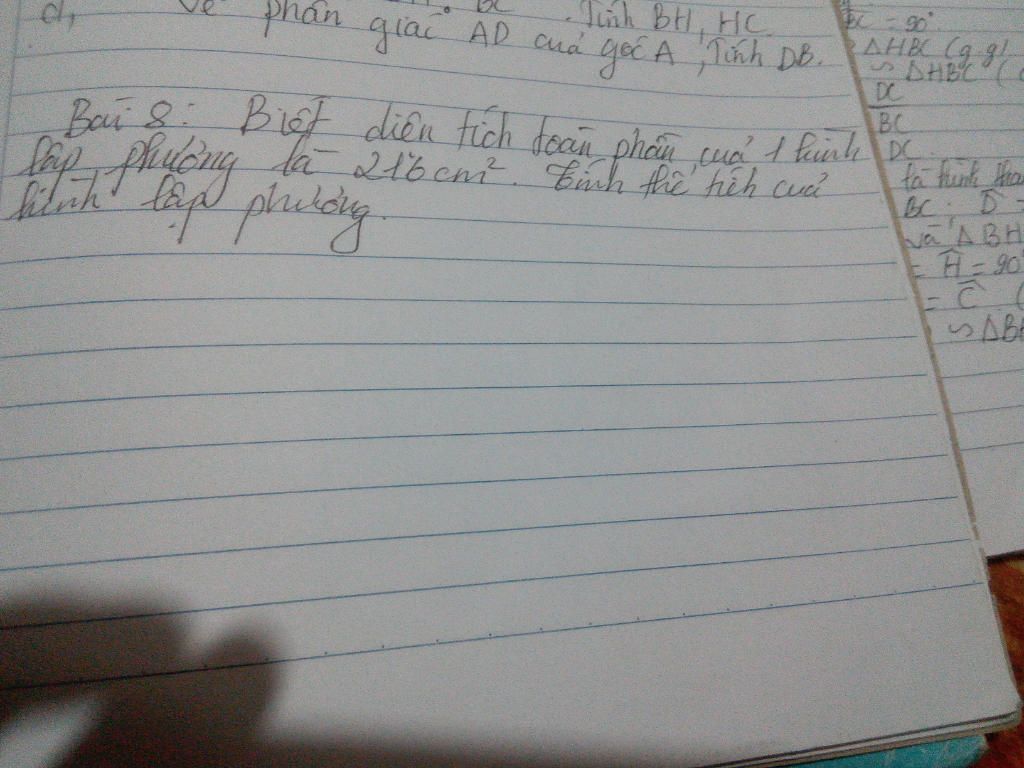 d, Vẽ phân giác AD của góc A, Tính DB.
BC . Tính BH, HC
Bài 8: Biết diện tích toàn phần của 1 hình
lập phương là 216cm². Tính thể tích của
hình lập phương.
BC = 90°
ΔHBC (g.g)
∽ ΔHBC (
DC
BC
DC
là hình tha
BC. D
và ΔBH
= H = 90°
= C (
∽ ΔBH